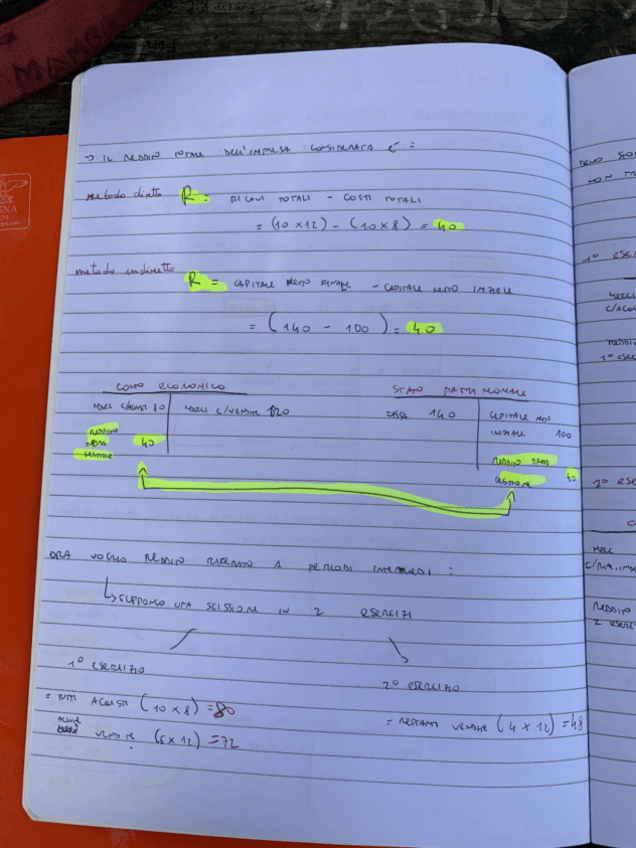 → IL REDDITO TOTALE DELL'IMPRESA CONSIDERATA E' :
metodo diretto R = RICAVI TOTALI - COSTI TOTALI
= (10 x 12) - (10 x 8) = 40
metodo indiretto R = CAPITALE NETTO FINALE - CAPITALE NETTO INIZIALE
= (140 - 100) = 40
CONTO ECONOMICO
MERCI C/ACQUISTI 80 MERCI C/VENDITE 120
REDDITO
DELLA 40
GESTIONE
STATO PATRIMONIALE
CASSA 140 CAPITALE NETTO
INIZIALE 100
REDDITO DELLA
GESTIONE 40
ORA VOGLIO REDDITO RIFERITO A PERIODI INTERMEDI :
↳ SUPPONGO UNA SCISSIONE IN 2 ESERCIZI
1° ESERCIZIO
= TUTTI ACQUISTI (10 x 8) = 80
ALCUNE VENDITE (6 x 12) = 72
2° ESERCIZIO
= RESTANTI VENDITE (4 x 12) = 48
NON
1° ESE
MERCI
C/ACQ
REDDI
1° ESE
2° ESE
MERC
C/RIM.
REDDITO
2 ESER